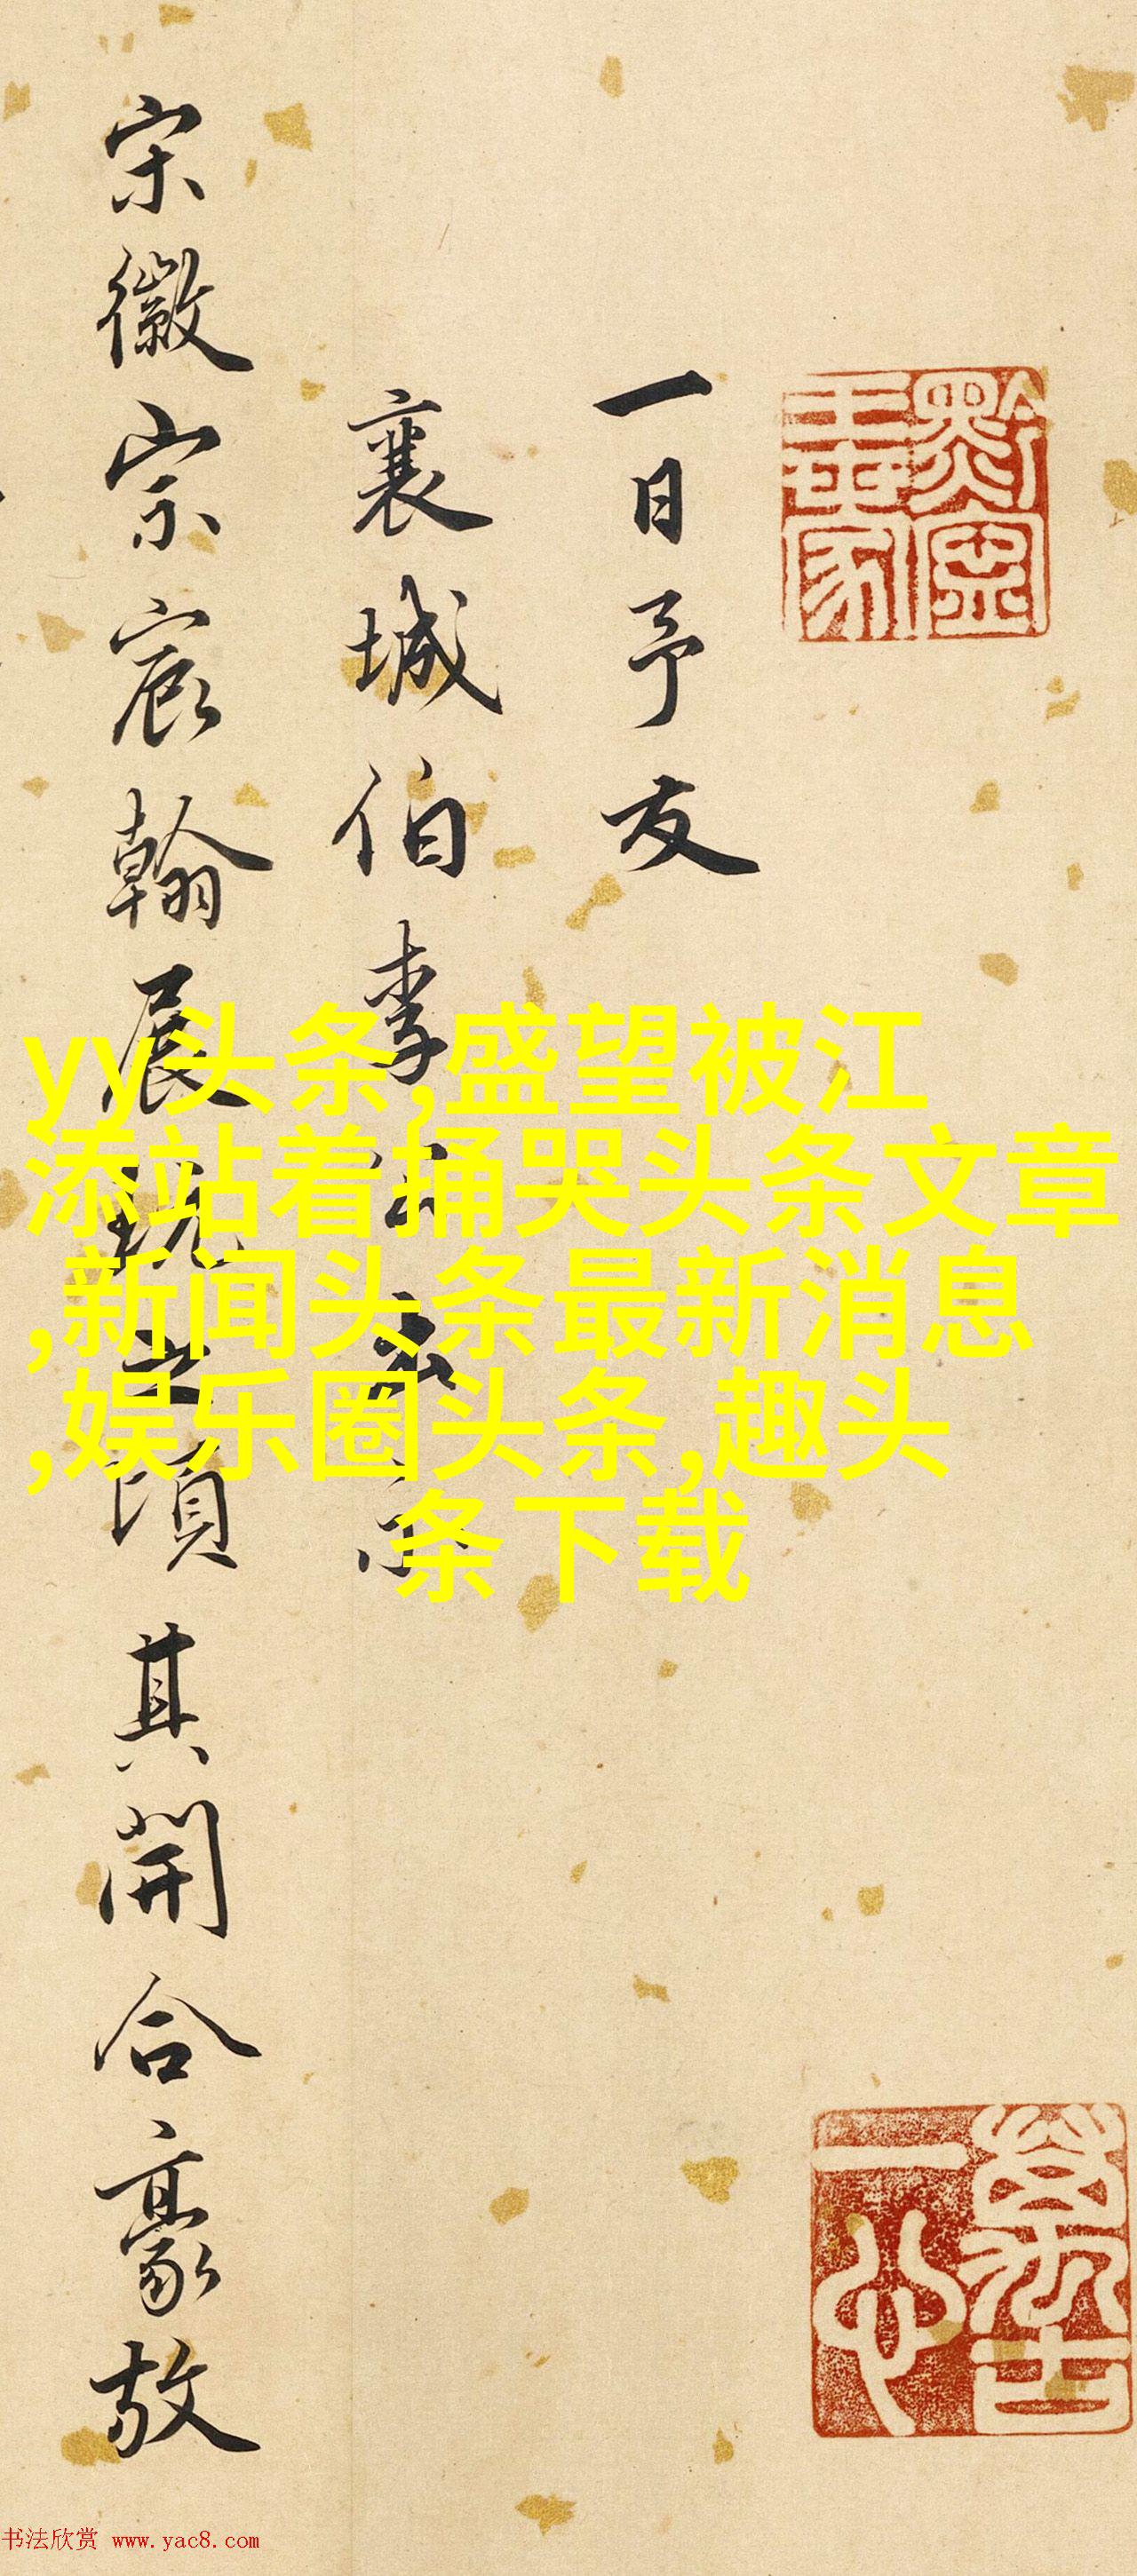 黔寧王世家
一日予友
襄城伯李
宋徽宗宸翰展玩之頃其開合豪放
萬古一心
yy头条,盛望被江
添站着捅哭头条文章
,新闻头条最新消息
,娱乐圈头条,趣头
条下载
书法欣赏 www.yac8.com